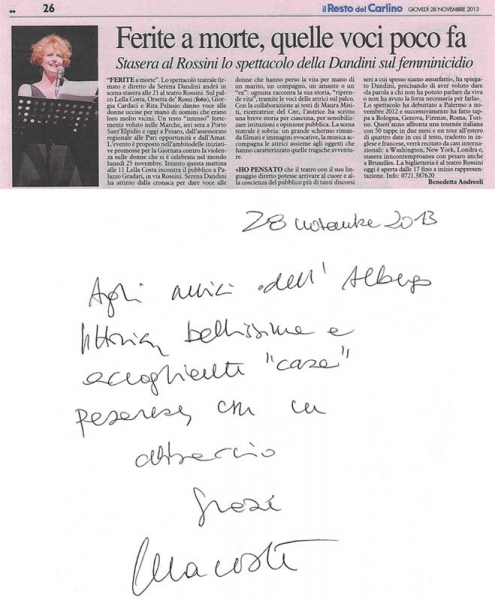 26
il Resto del Carlino GIOVEDÌ 28 NOVEMBRE 2013
Ferite a morte, quelle voci poco fa
Stasera al Rossini lo spettacolo della Dandini sul femminicidio
"FERITE a morte". Lo spettacolo teatrale firmato e diretto da Serena Dandini andrà in
scena stasera alle 21 al teatro Rossini. Sul palco Lella Costa, Orsetta de' Rossi (foto), Giorgia Cardaci e Rita Pelusio danno voce alle
donne uccise per mano di uomini che erano loro molto vicini. Un testo "intenso" fortemente voluto nelle Marche, ieri sera a Porto
Sant'Elpidio e oggi a Pesaro, dall'assessorato regionale alle Pari opportunità e dall'Amat.
L'evento è proposto nell'ambito delle iniziative promosse per la Giornata contro la violenza sulle donne che si è celebrata nel mondo
lunedì 25 novembre. Intanto questa mattina alle 11 Lella Costa incontra il pubblico a Palazzo Gradari, in via Rossini. Serena Dandini
ha attinto dalla cronaca per dare voce alle
donne che hanno perso la vita per mano di un marito, un compagno, un amante o un
"ex": ognuna racconta la sua storia, "riprendendo vita", tramite le voci delle attrici sul palco.
Con la collaborazione ai testi di Maura Misiti, ricercatrice del Cnr, l'autrice ha scritto
una breve storia per ciascuna, per sensibilizzare istituzioni e opinione pubblica. La scena
teatrale è sobria: un grande schermo rimanda filmati e immagini evocative, la musica accompagna le attrici assieme agli oggetti che
hanno caratterizzato quelle tragiche avventure.
«HO PENSATO che il teatro con il suo linguaggio diretto potesse arrivare al cuore e alla coscienza del pubblico più di tanti discorsi
seri a cui spesso siamo assuefatti», ha spiegato la Dandini, precisando di aver voluto dare
la parola a chi non ha potuto parlare da viva o non ha avuto la forza necessaria per farlo».
Lo spettacolo ha debuttato a Palermo a novembre 2012 e successivamente ha fatto tappa a Bologna, Genova, Firenze, Roma, Torino. Quest'anno affronta una tournée italiana
con 50 tappe in due mesi e un tour all'estero di quattro date in cui il testo, tradotto in inglese e francese, verrà recitato da cast internazionali: a Washington, New York, Londra e,
stasera in contemporanea con pesaro anche a Bruxelles. La biglietteria è al teatro Rossini
oggi è aperta dalle 17 fino a inizio rappresentazione. Info: 0721.387620
Benedetta Andreoli
28 novembre 2013
Agli amici dell'Albergo
Vittoria, bellissima e
accogliente "casa"
pesarese, con un
abbraccio
Grazie
Lella Costa